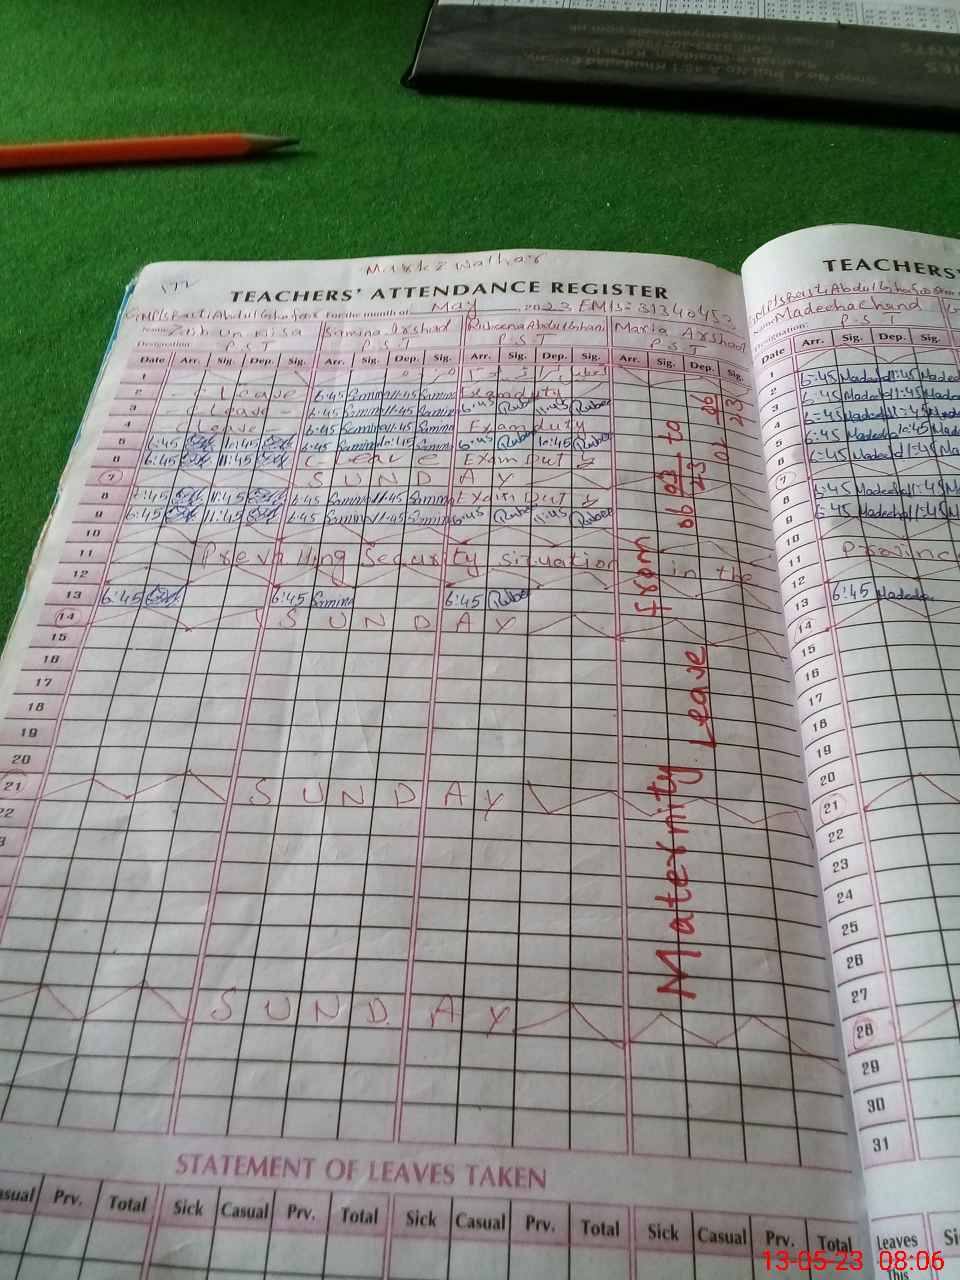 Markz Walhar
TEACHERS' ATTENDANCE REGISTER
GMPS Basti Abdul Ghafar For the month of May 2023 EMIS: 31340453
Name Zaib un nisa Samina Arshad Rubeena Abdul Ghani Maria Arshad
Designation P.S.T P.S.T P.S.T
Date Arr. Sig. Dep. Sig. Arr. Sig. Dep. Sig. Arr. Sig. Dep. Sig. Arr. Sig. Dep. Sig.
1
2 C Leave 6:45 Samina 11:45 Samina Exam duty
3 - C Leave - 6:45 Samina 11:45 Samina 6:45 Rubee 11:45 Rubee
4 C Leave - 6:45 Samina 11:45 Samina Exam duty
5 6:45 10:45 6:45 Samina 10:45 Samina 6:45 Rubee 10:45 Rubee
6 6:45 11:45 C - Leave Exam Duty
7 SUNDAY
8 7:45 11:45 6:45 Samina 11:45 Samina Exam Duty
9 6:45 11:45 6:45 Samina 11:45 Samina 6:45 Rubee 11:45 Rubee
10
11 Prevailing Security situation in the
12
13 6:45 6:45 Samina 6:45 Rubee
14 SUNDAY
15
16
17
18
19
20
21 SUNDAY
22
3
SUNDAY
Maternity Leave from 06 03 23 to 01 06 23
STATEMENT OF LEAVES TAKEN
asual Prv. Total Sick Casual Prv. Total Sick Casual Prv. Total Sick Casual Prv. Total
TEACHERS'
GMPS Basti Abdul Ghafar
Name Madeeha Chand
Designation: P.S.T
Date Arr. Sig. Dep. Sig.
1
2 6:45 Madeeha 11:45 Madeeha
3 6:45 Madeeha 11:45 Madeeha
4 6:45 Madeeha 11:45 Madeeha
5 6:45 Madeeha 10:45 Madeeha
6 6:45 Madeeha 11:45 Madeeha
7
8 6:45 Madeeha 11:45
9 6:45 Madeeha 11:45
10
11 Provinc
12
13 6:45 Madeeha
14
15
16
17
18
19
20
21
22
23
24
25
26
27
28
29
30
31
Leaves
This
13-05-23 08:06